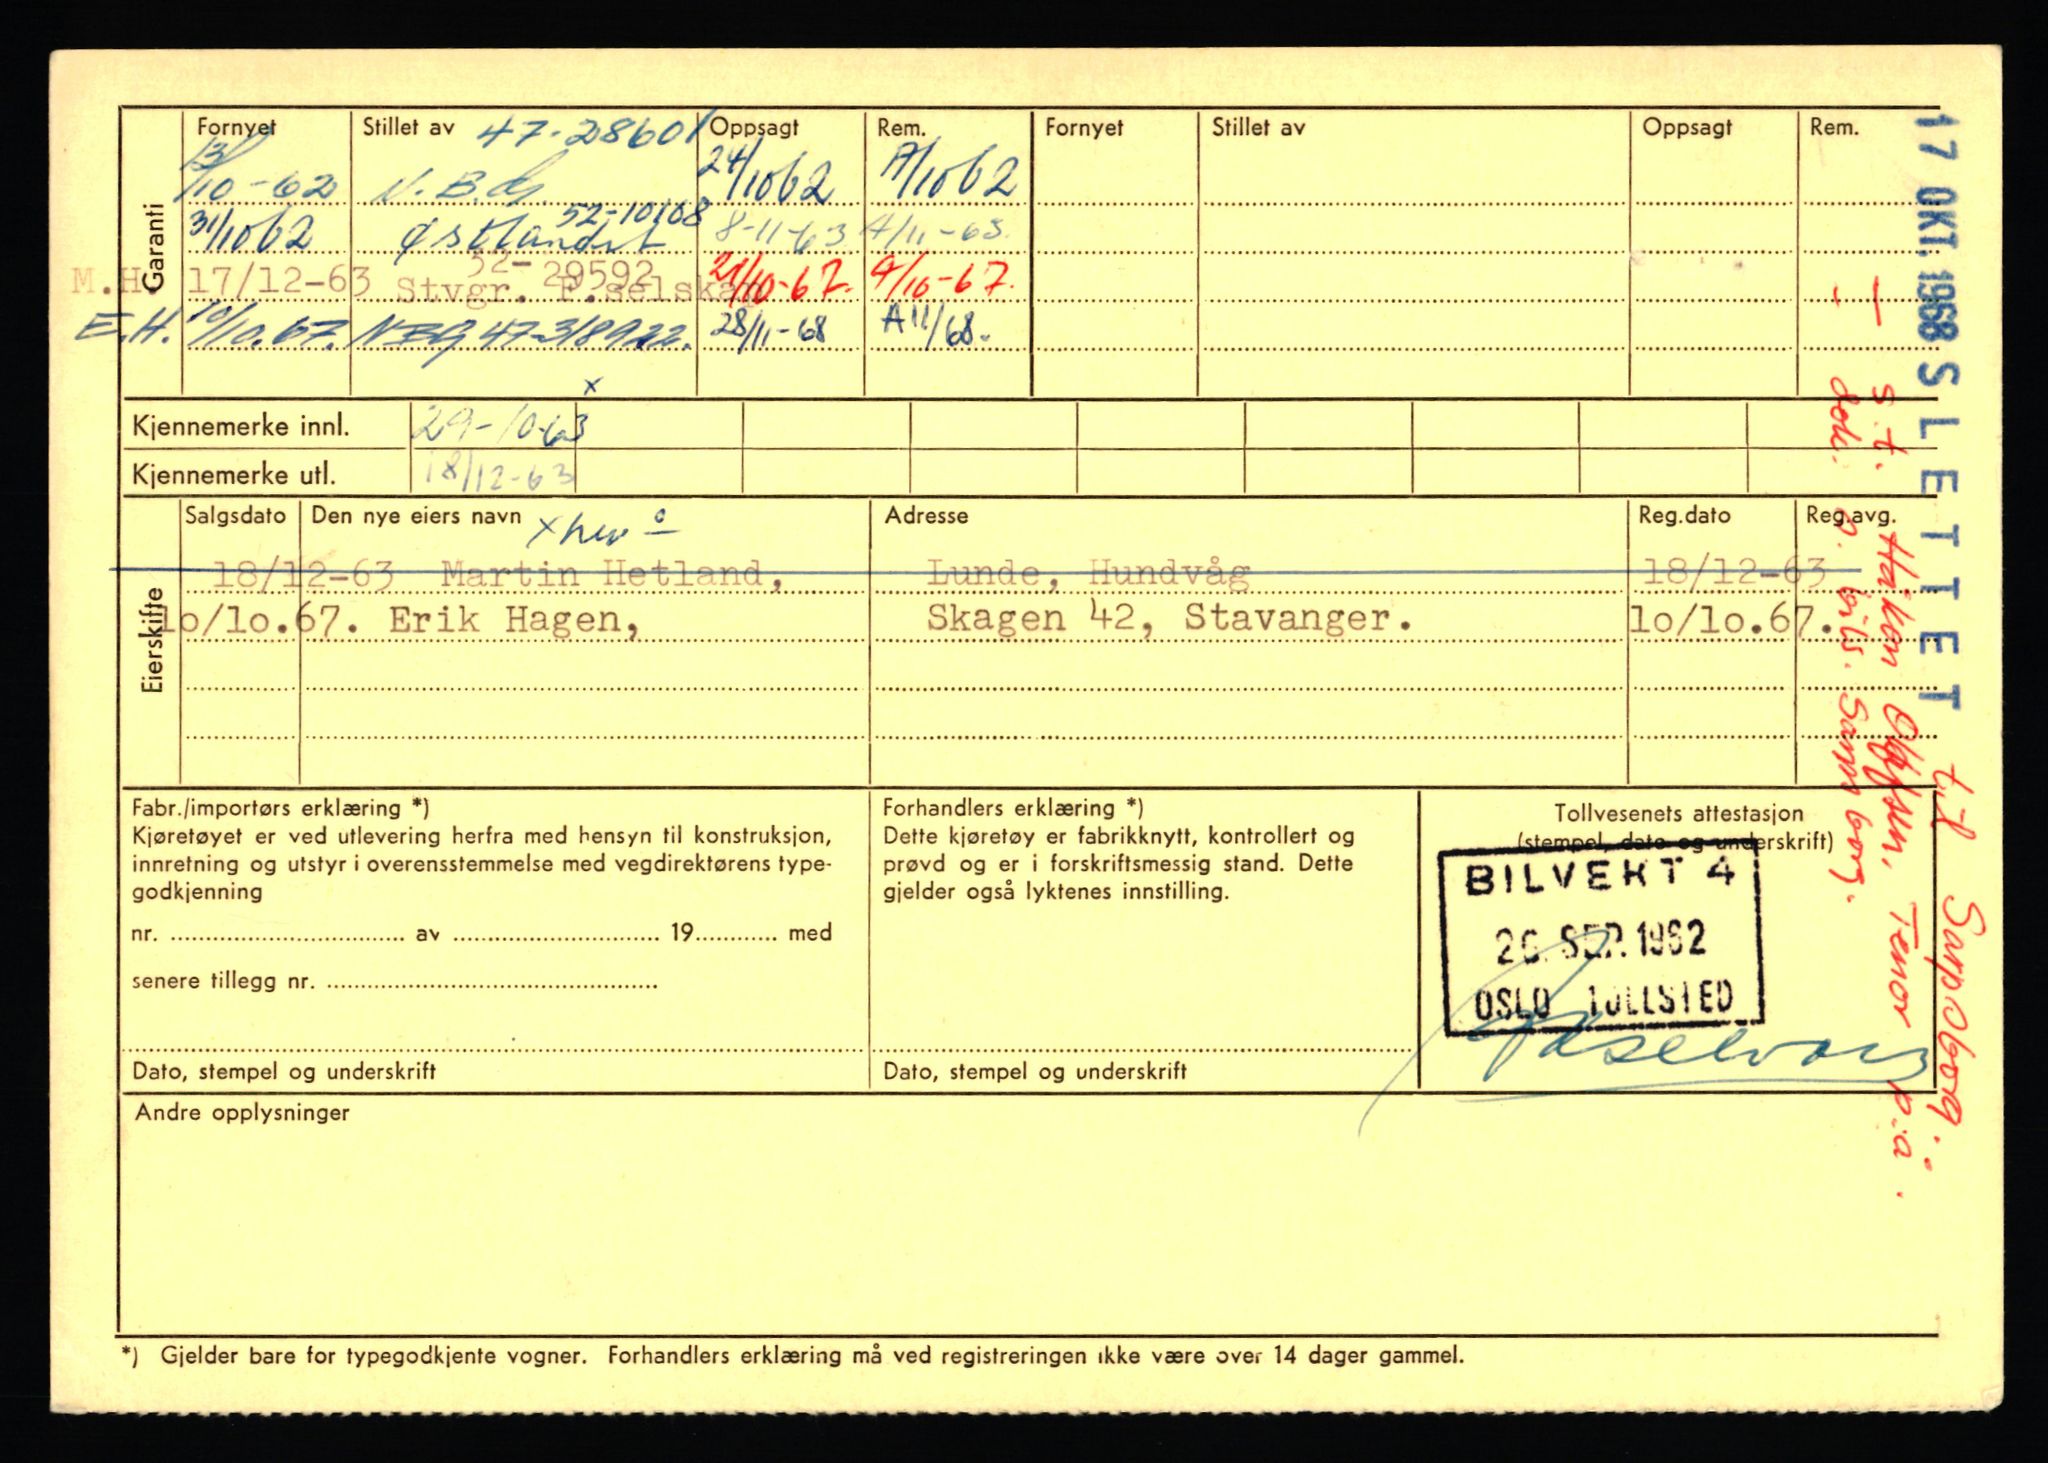 Garanti
Fornyet Stillet av 47-28601 Oppsagt Rem. Fornyet Stillet av Oppsagt Rem.
13/10-62 24/10 62 A/10 62
52-10168
31/10 62 Østlandet 8-11-63 A/11-63.
52-29592
M.H. 17/12-63 Stvgr. F.selskap 21/10-67. A/10-67.
E.H. 10/10.67. NBG 47-318922. 28/11-68 A11/68.
x
Kjennemerke innl. 29-10-63
Kjennemerke utl. 18/12-63
Eierskifte
Salgsdato Den nye eiers navn Adresse Reg.dato Reg.avg.
x
18/12-63 Martin Hetland, Lunde, Hundvåg 18/12-63
10/10.67. Erik Hagen, Skagen 42, Stavanger. 10/10.67.
Fabr./importørs erklæring *)
Kjøretøyet er ved utlevering herfra med hensyn til konstruksjon,
innretning og utstyr i overensstemmelse med vegdirektørens type-
godkjenning
nr. av 19 med
senere tillegg nr.
Dato, stempel og underskrift
Forhandlers erklæring *)
Dette kjøretøy er fabrikknytt, kontrollert og
prøvd og er i forskriftsmessig stand. Dette
gjelder også lyktenes innstilling.
Dato, stempel og underskrift
Tollvesenets attestasjon
(stempel, dato og underskrift)
BILVEKT 4
26. SEP. 1962
OSLO TOLLSTED
Andre opplysninger
*) Gjelder bare for typegodkjente vogner. Forhandlers erklæring må ved registreringen ikke være over 14 dager gammel.
17 OKT. 1968 SLETTET til Sarpsborg.
- s.t. Håkon Olsen, Tenor p.a.
- dok. p. bils. Sarpsborg.